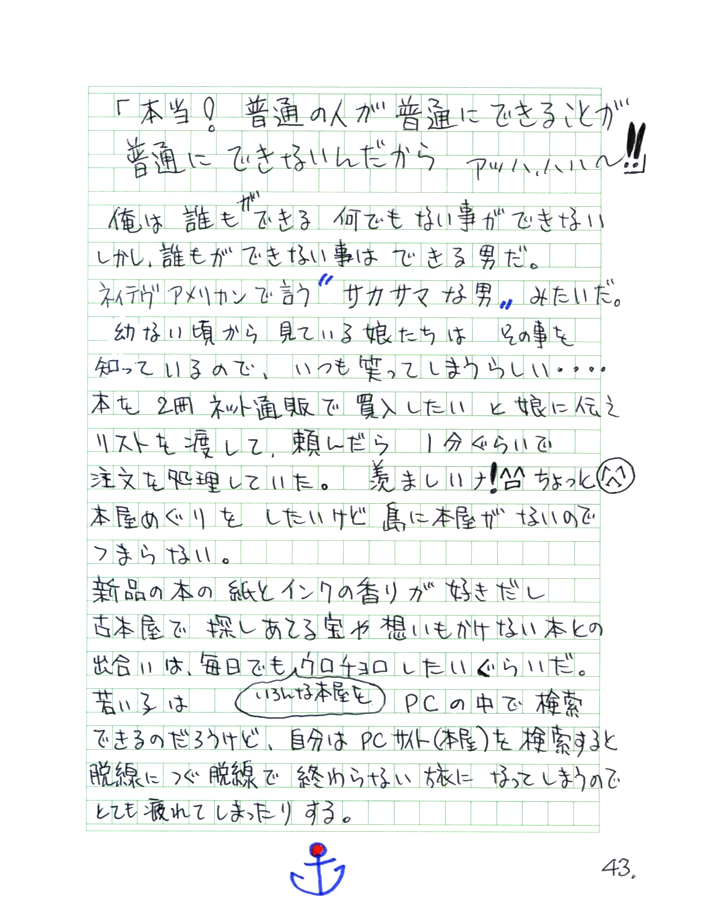 「本当! 普通の人が普通にできることが
普通にできないんだから アッハ、ハハハ〜!!」
俺は誰もができる何でもない事ができない
しかし、誰もができない事はできる男だ。
ネイテヴアメリカンで言う〝サカサマな男〟みたいだ。
幼ない頃から見ている娘たちは その事を
知っているので、いつも笑ってしまうらしい‥‥
本を2冊ネット通販で買入したいと娘に伝え
リストを渡して、頼んだら 1分ぐらいで
注文を処理していた。 羨ましいナ!^^ ちょっと^^
本屋めぐりをしたいけど島に本屋がないので
つまらない。
新品の本の紙とインクの香りが好きだし
古本屋で探しあてる宝や想いもかけない本との
出合いは、毎日でもウロチョロしたいぐらいだ。
若い子は いろんな本屋を PCの中で検索
できるのだろうけど、自分はPCサイト(本屋)を検索すると
脱線につぐ脱線で終わらない旅になってしまうので
とても疲れてしまったりする。
43.